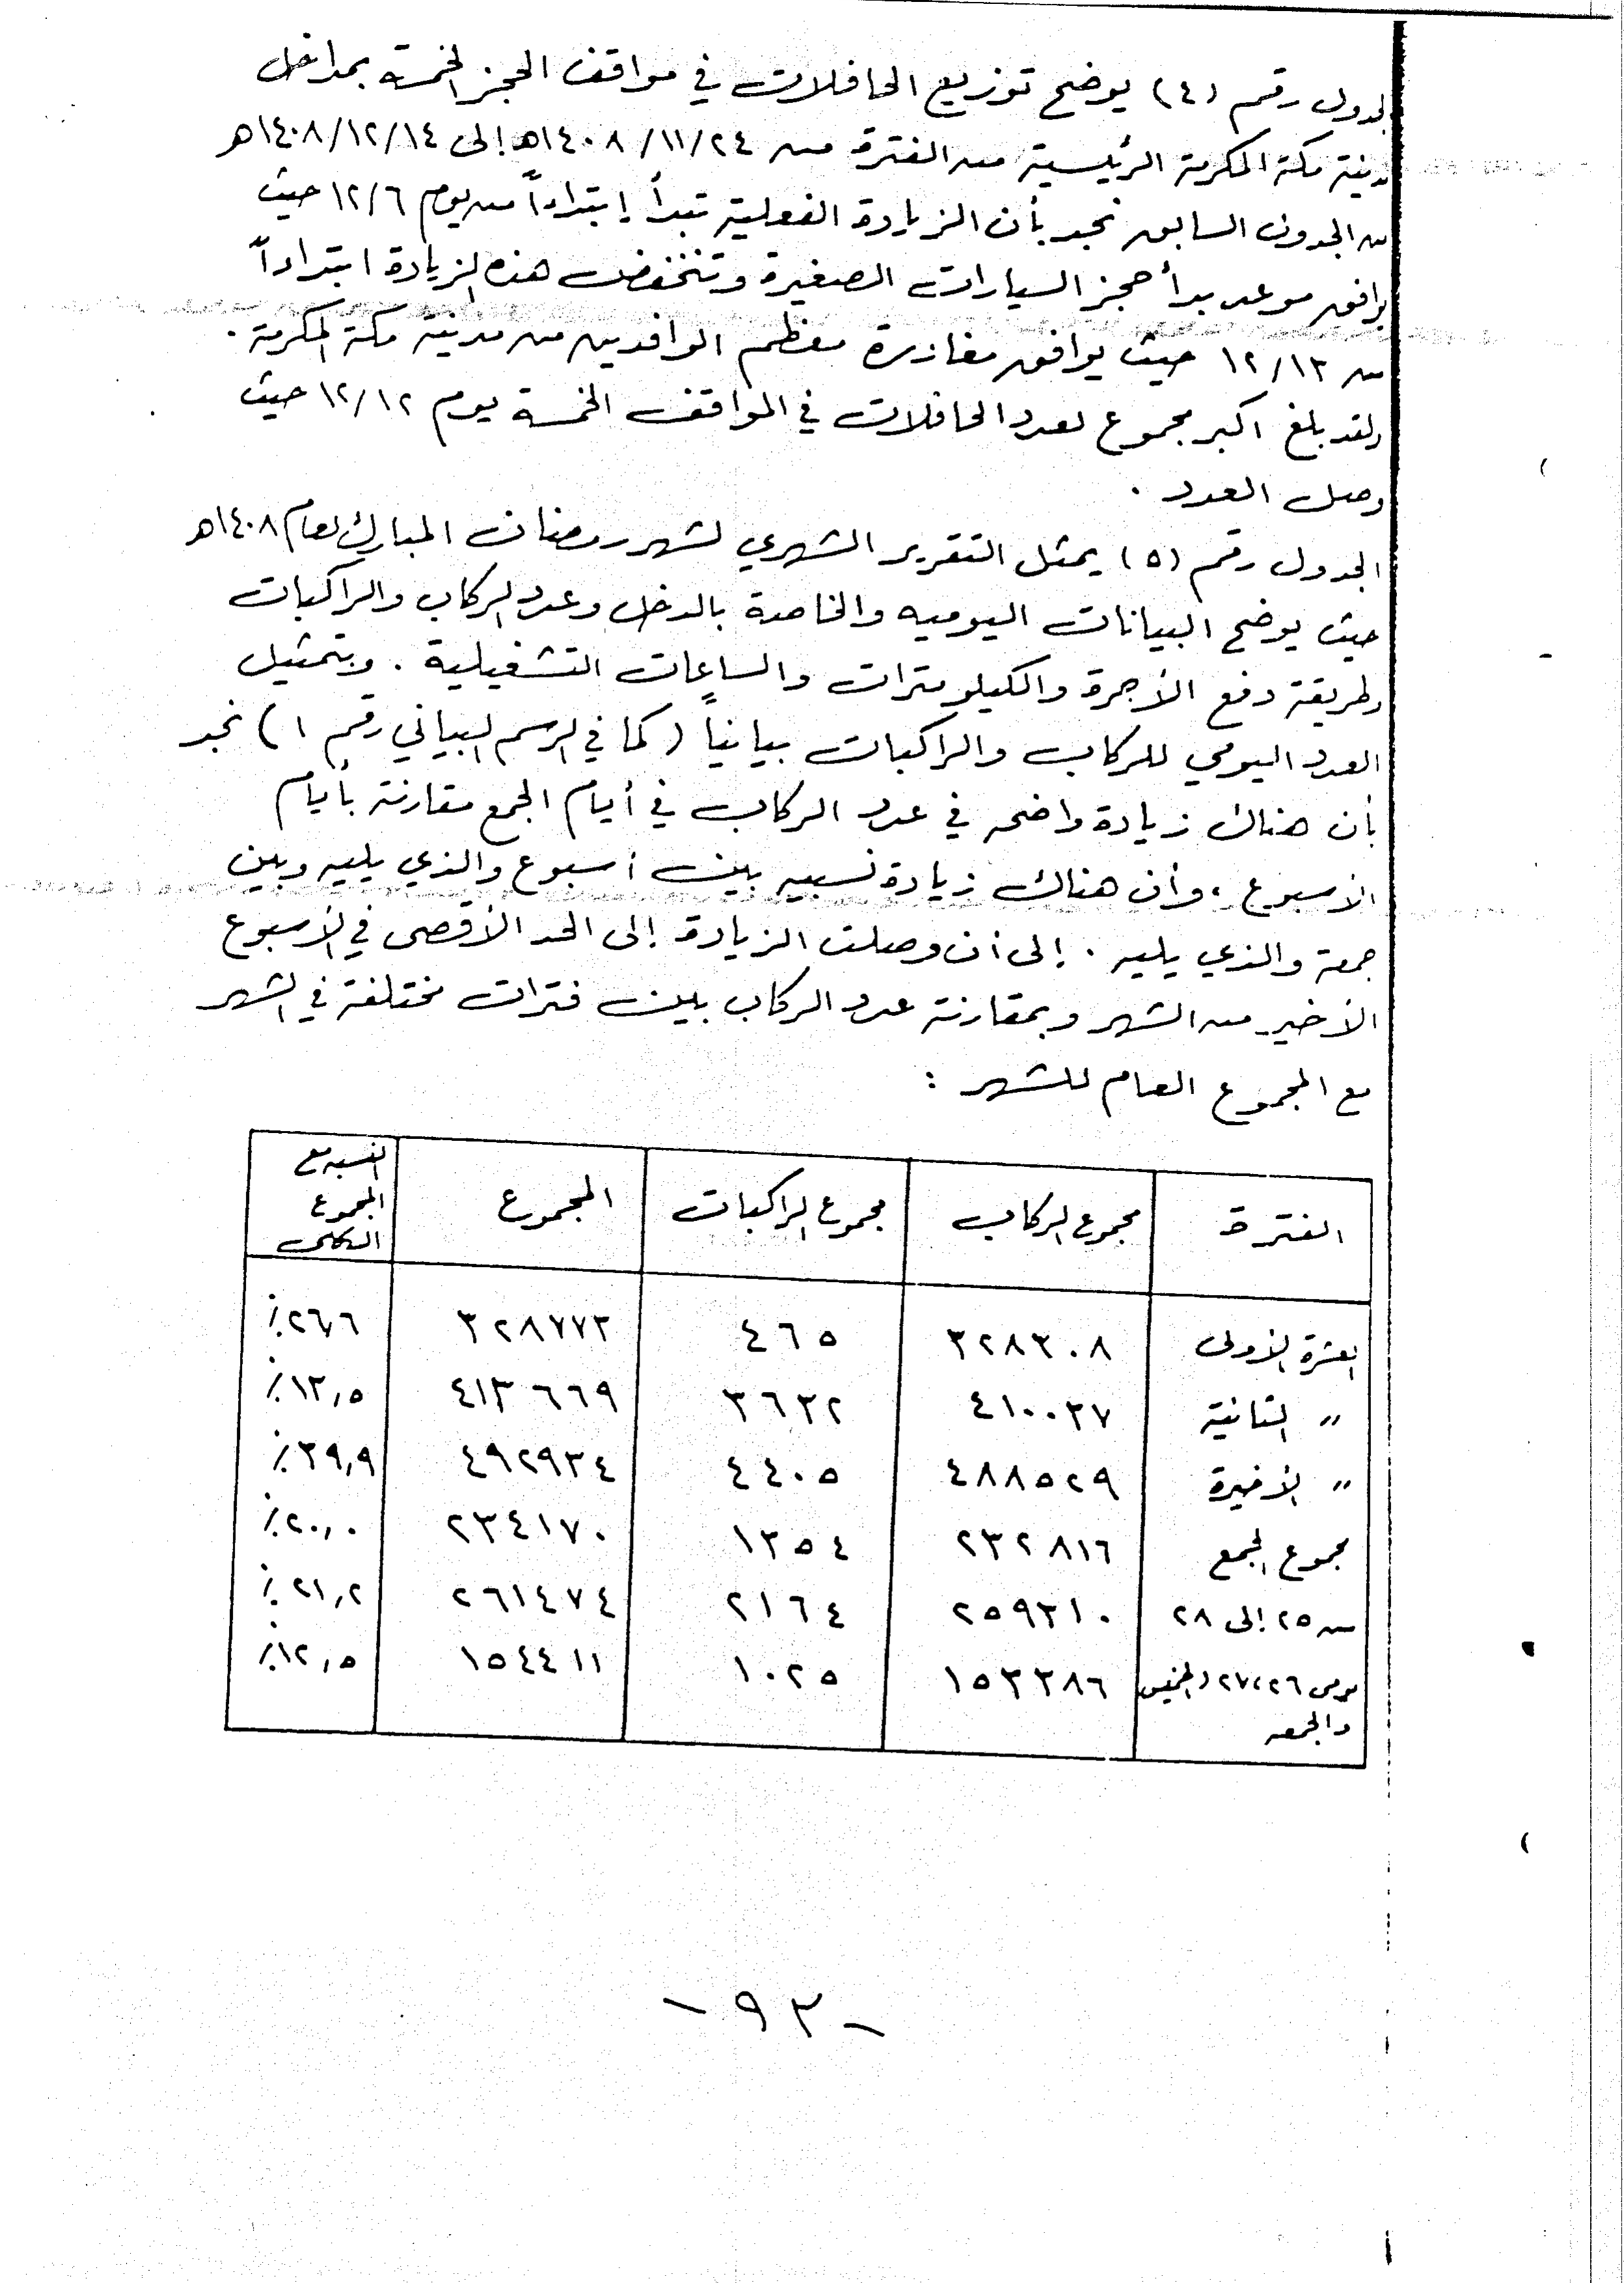 لجدول رقم (٤) يوضح توزيع الحافلات في مواقف الحجز الخمسة بمداخل
مدينة مكة المكرمة الرئيسية من الفترة من ١٤٠٨/١١/٢٤هـ إلى ١٤٠٨/١٢/١٤هـ
من الجدول السابق نجد بأن الزيادة الفعلية تبدأ إبتداءاً من يوم ١٢/٦ حيث
يوافق موعد بدأ حجز السيارات الصغيرة وتنخفض هذه الزيادة ابتداءاً
من ١٢/١٣ حيث يوافق مغادرة معظم الوافدين من مدينة مكة المكرمة .
ولقد بلغ اكبر مجموع لعدد الحافلات في المواقف الخمسة يوم ١٢/١٢ حيث
وصل العدد .
الجدول رقم (٥) يمثل التقرير الشهري لشهر رمضان المبارك لعام ١٤٠٨هـ
حيث يوضح البيانات اليوميه والخاصة بالدخل وعدد الركاب والراكبات
وطريقة دفع الأجرة والكيلومترات والساعات التشغيلية . وبتمثيل
العدد اليومي للركاب والراكبات بيانياً (كما في الرسم البياني رقم ١) نجد
بأن هناك زيادة واضحه في عدد الركاب في أيام الجمع مقارنة بأيام
الأسبوع ، وأن هناك زيادة نسبيه بين أسبوع والذي يليه وبين
جمعة والذي يليه . إلى أن وصلت الزيادة إلى الحد الأقصى في الأسبوع
الأخير من الشهر وبمقارنة عدد الركاب بين فترات مختلفة في الشهر
مع المجموع العام للشهر :
الفترة | مجموع الركاب | مجموع الراكبات | المجموع | النسبه مع المجموع الكلى
العشرة الأولى | ٣٢٨٣٠٨ | ٤٦٥ | ٣٢٨٧٧٣ | ٢٦,٦٪
〃 الثانية | ٤١٠٠٣٧ | ٣٦٣٢ | ٤١٣٦٦٩ | ١٣,٥٪
〃 الأخيرة | ٤٨٨٥٢٩ | ٤٤٠٥ | ٤٩٢٩٣٤ | ٣٩,٩٪
مجموع الجمع | ٢٣٢٨١٦ | ١٣٥٤ | ٢٣٤١٧٠ | ٢٠,٠٪
من ٢٥ إلى ٢٨ | ٢٥٩٣١٠ | ٢١٦٤ | ٢٦١٤٧٤ | ٢١,٢٪
يومى ٢٦،٢٧ والخميس | ١٥٣٣٨٦ | ١٠٢٥ | ١٥٤٤١١ | ١٢,٥٪
والجمعه
- ٩٣ -